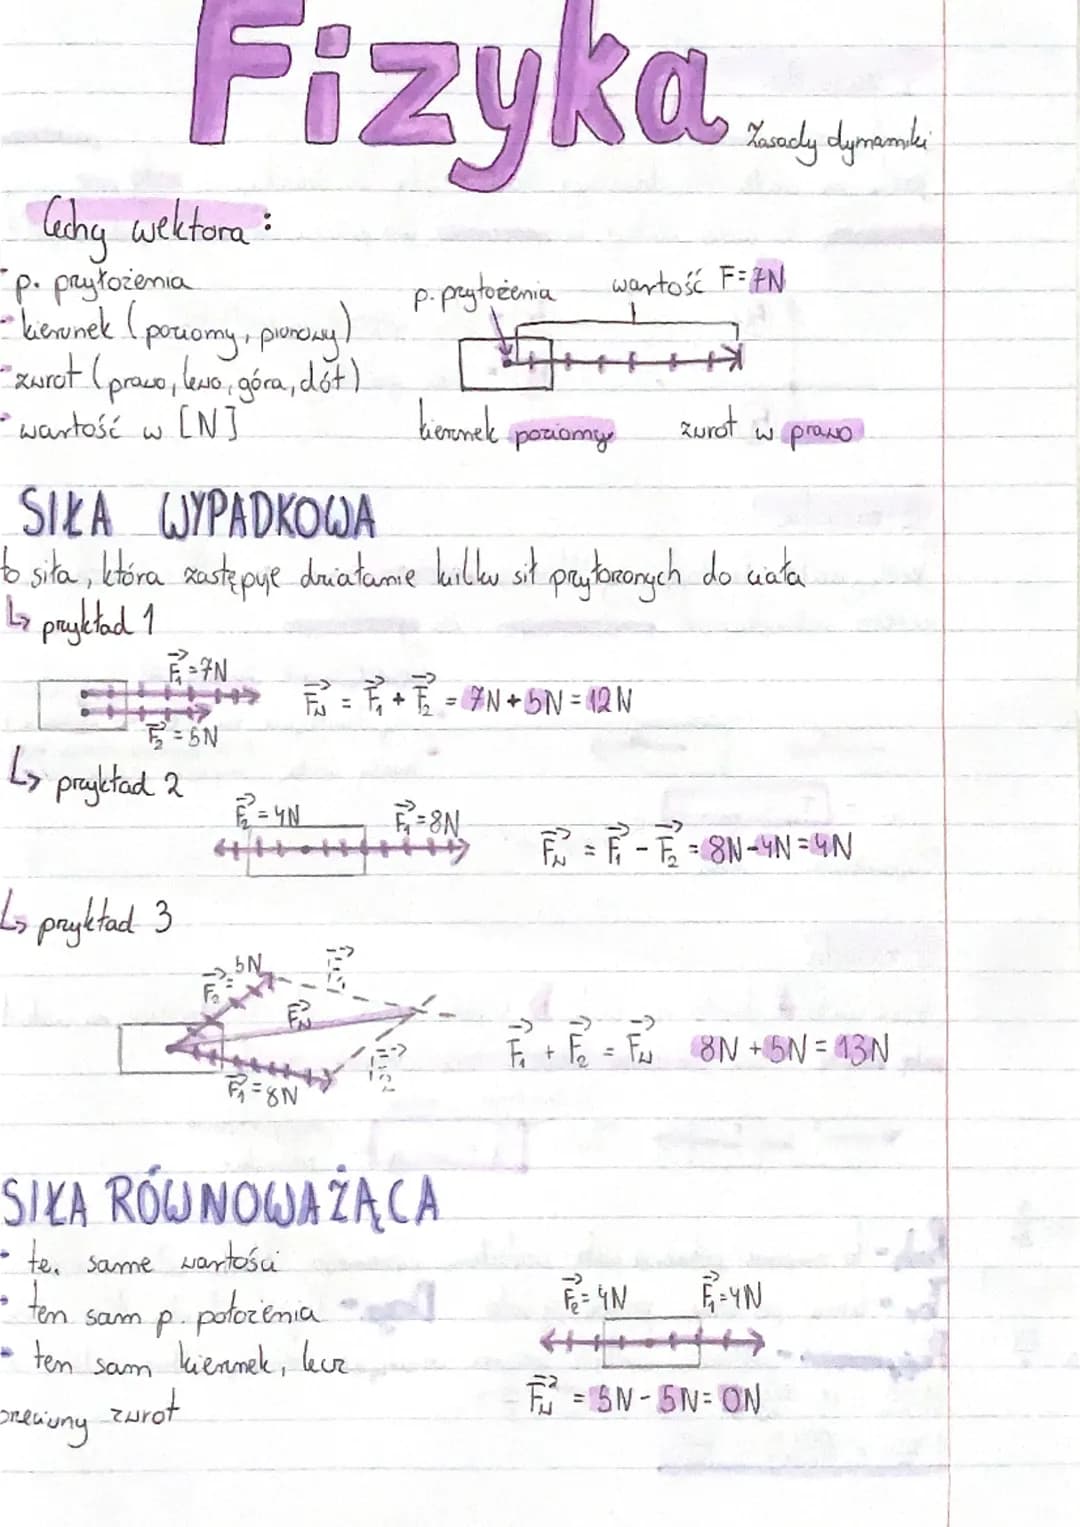 Fizyka
Zasady dynamiki
Cechy wektora :
- p. przyłożenia
- kierunek (poziomy, pionowy)
- zwrot (prawo, lewo, góra, dół)
- wartość w [N]
p. przyłożenia
wartość F=7N
kierunek poziomy
zwrot w prawo
SIŁA WYPADKOWA
to siła, która zastępuje działanie kilku sił przyłożonych do ciała
↳ przykład 1
F₁=7N
F₂=5N
Fw = F₁ + F₂ = 7N+5N=12N
↳ przykład 2
F₂=4N
F₁=8N
Fw = F₁ - F₂ = 8N-4N=4N
↳ przykład 3
F₂=5N
F₁
Fw
F₂
F₁=8N
F₁ + F₂ = Fw 8N+5N=13N
SIŁA RÓWNOWAŻĄCA
• te same wartości
• ten sam p. położenia
• ten sam kierunek, lecz
przeciwny zwrot
F₂=4N
F₁=4N
Fw = 5N-5N=0N